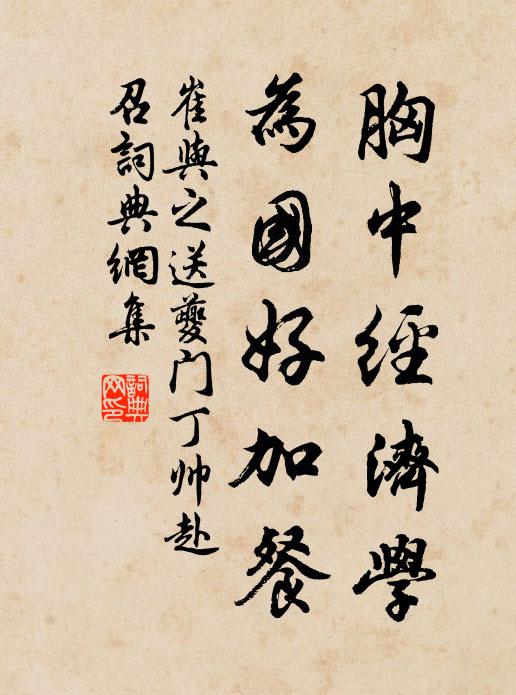 胸中經濟學
為國好加餐
崔與之送夔门丁帅赴
召詞典網集
詞典
网印